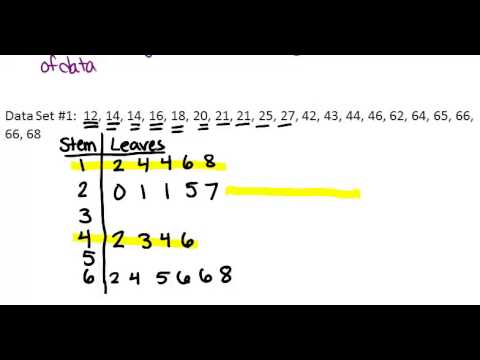 of data
Data Set #1: 12, 14, 14, 16, 18, 20, 21, 21, 25, 27, 42, 43, 44, 46, 62, 64, 65, 66,
66, 68
Stem Leaves
1 2 4 4 6 8
2 0 1 1 5 7
3
4 2 3 4 6
5
6 2 4 5 6 6 8